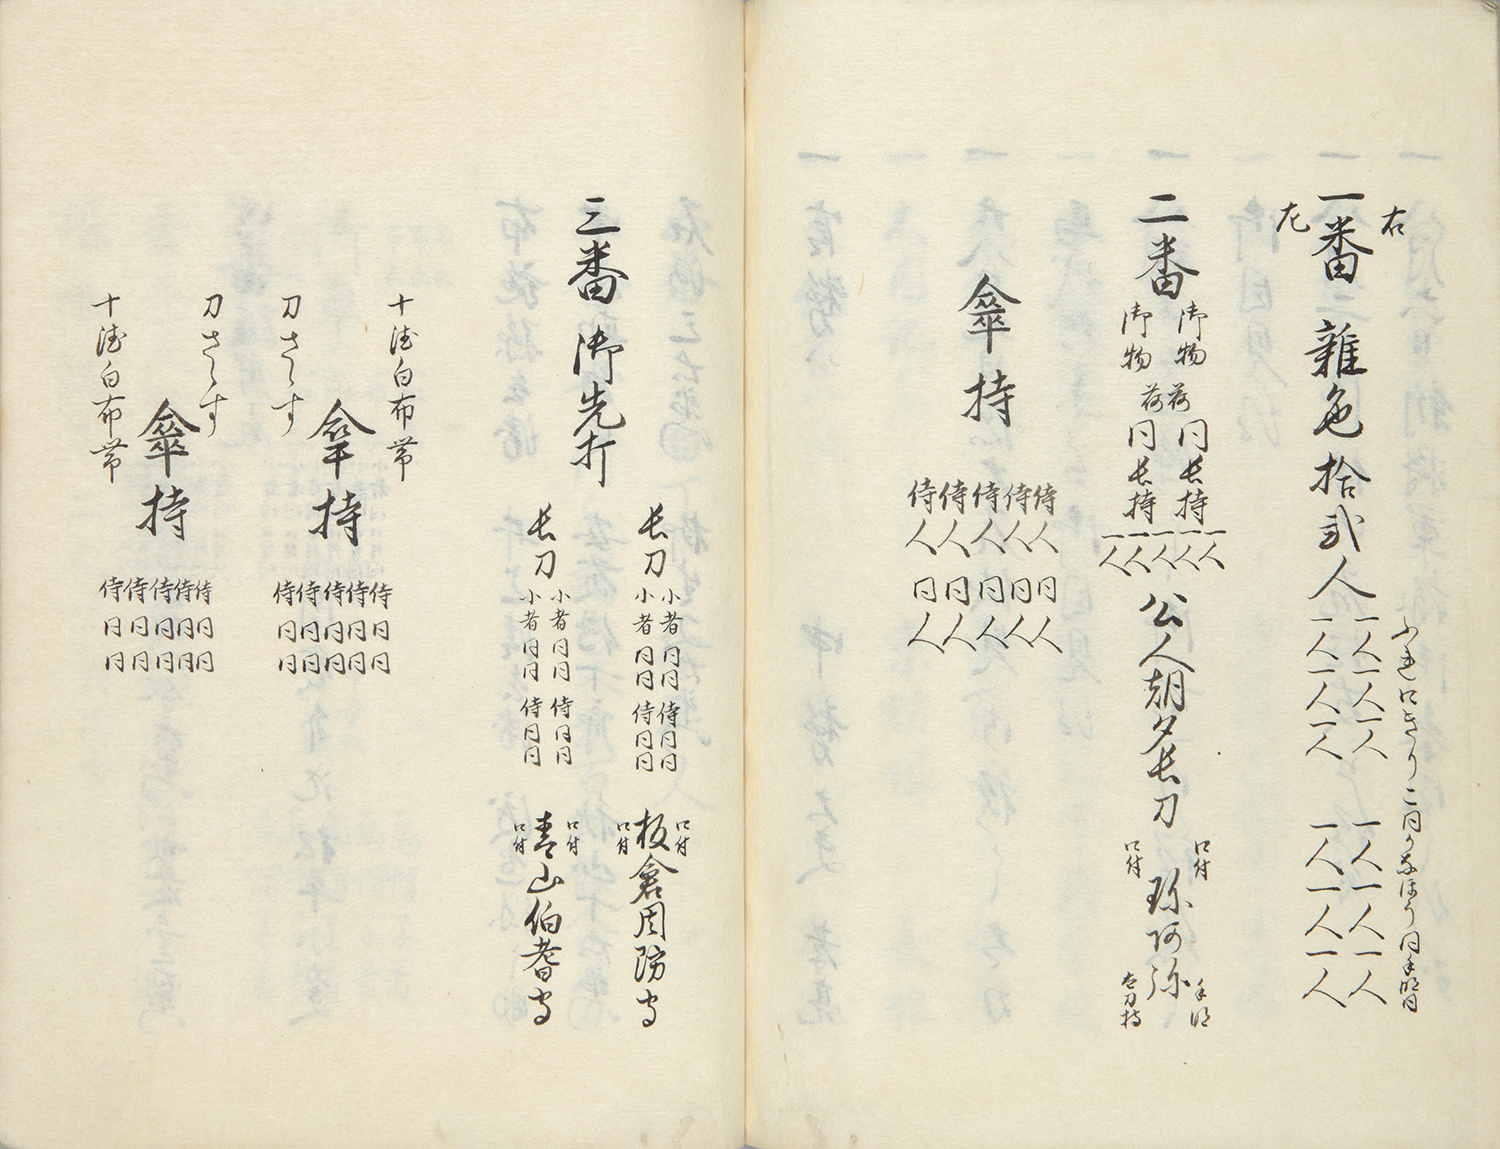 右
一番 雑色 拾弐人 一人 一人 一人 一人 一人 一人
左 一人 一人 一人 一人 一人 一人
御物 荷 同 長持 一人 一人 一人
二番 公人朝夕長刀 弥阿弥
御物 荷 同 長持 一人 一人
口付 手明
口付 太刀持
傘持
侍 人 同 人
侍 人 同 人
侍 人 同 人
侍 人 同 人
侍 人 同 人
三番 御先打
長刀 小者 同 同 侍 同 同
小者 同 同 侍 同 同
口付
板倉周防守
口付
長刀 小者 同 同 侍 同 同
小者 同 同 侍 同 同
口付
青山伯耆守
口付
十徳白布帯
傘持
刀さゝす
侍 同 同
侍 同 同
侍 同 同
侍 同 同
侍 同 同
刀さゝす
傘持
十徳白布帯
侍 同 同
侍 同 同
侍 同 同
侍 同 同
侍 同 同